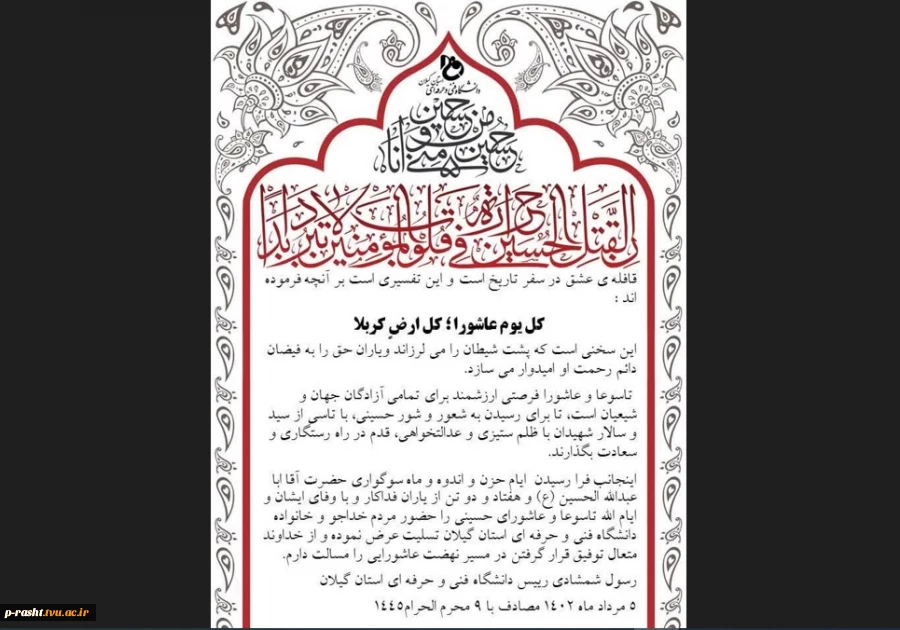 استان گیلان
دانشگاه فنی و حرفه‌ای
حسین منی و انا من حسین
ان لقتل الحسین حرارة فی قلوب المؤمنین لا تبرد ابدا
قافله ی عشق در سفر تاریخ است و این تفسیری است بر آنچه فرموده
اند :
کل یوم عاشورا؛ کل ارضٍ کربلا
این سخنی است که پشت شیطان را می لرزاند ویاران حق را به فیضان
دائم رحمت او امیدوار می سازد.
تاسوعا و عاشورا فرصتی ارزشمند برای تمامی آزادگان جهان و
شیعیان است، تا برای رسیدن به شعور و شور حسینی، با تاسی از سید
و سالار شهیدان با ظلم ستیزی و عدالتخواهی، قدم در راه رستگاری و
سعادت بگذارند.
اینجانب فرا رسیدن ایام حزن و اندوه و ماه سوگواری حضرت آقا ابا
عبدالله الحسین (ع) و هفتاد و دو تن از یاران فداکار و با وفای ایشان و
ایام الله تاسوعا و عاشورای حسینی را حضور مردم خداجو و خانواده
دانشگاه فنی و حرفه ای استان گیلان تسلیت عرض نموده و از خداوند
متعال توفیق قرار گرفتن در مسیر نهضت عاشورایی را مسالت دارم.
رسول شمشادی رییس دانشگاه فنی و حرفه ای استان گیلان
۵ مرداد ماه ۱۴۰۲ مصادف با ۹ محرم الحرام۱۴۴۵
p-rasht.tvu.ac.ir